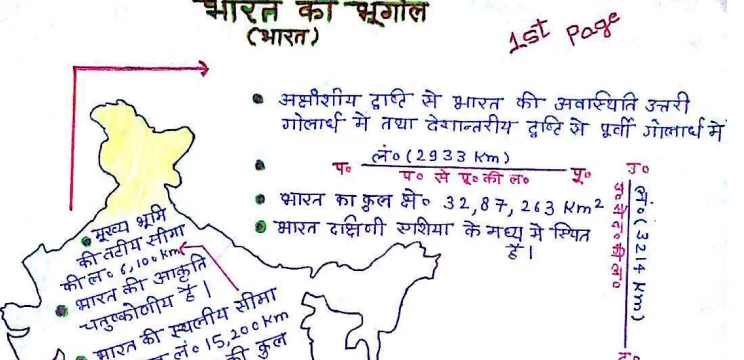 भारत का भूगोल
(भारत)
1st Page
अक्षांशीय दृष्टि से भारत की अवास्थिति उत्तरी
गोलार्ध में तथा देशान्तरीय दृष्टि से पूर्वी गोलार्ध में
लं० (2933 Km)
प० पू०
प० से पू० की लं०
भारत का कुल क्षे० 32,87,263 Km²
भारत दक्षिणी एशिया के मध्य मे स्थित
है।
उ०
लं० (3214 Km)
द०
मुख्य भूमि
की तटीय सीमा
की लं० 6,100 Km
भारत की आकृति
चतुष्कोणीय है।
भारत की स्थलीय सीमा
लं० 15,200 Km
की कुल